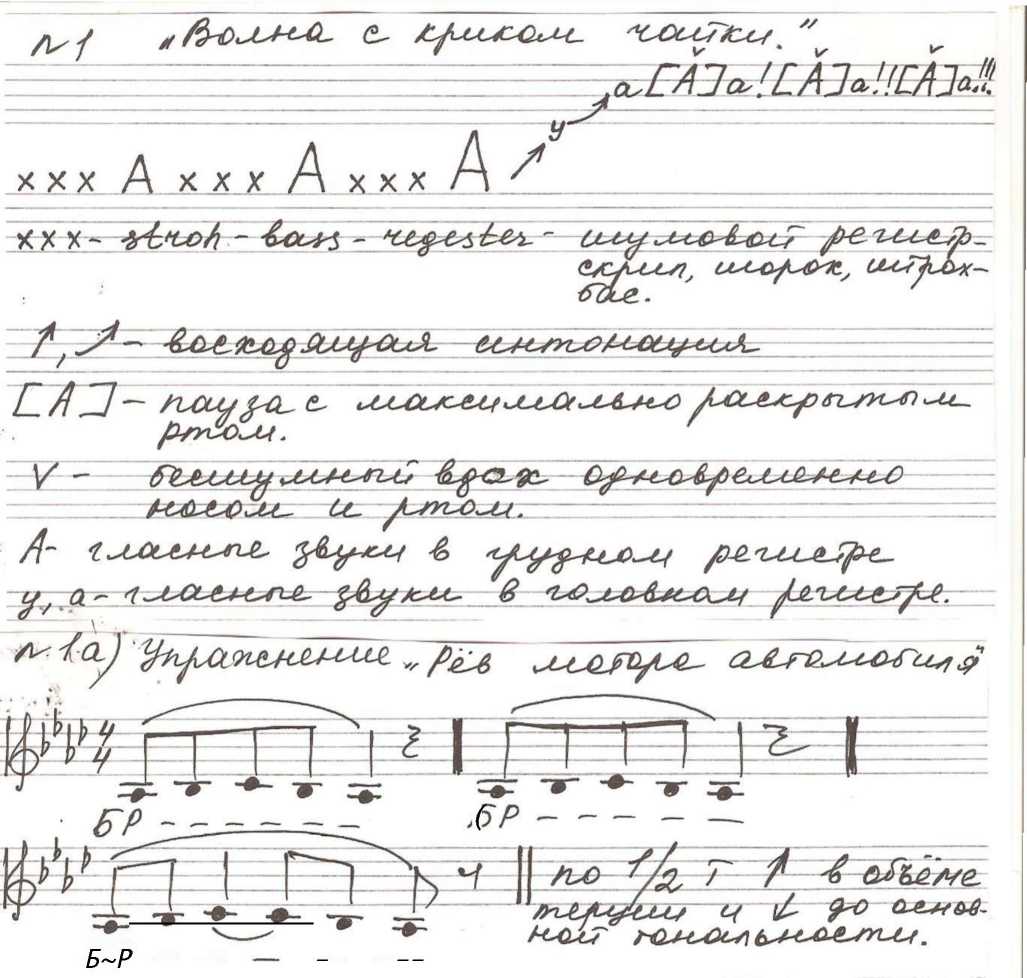 №1 „Волна с криком чайки."
а[Ǎ]а![Ǎ]а!![Ǎ]а!!!
у
ххх А ххх А ххх А
ххх- stroh - bass - regester - шумовой регистр-
скрип, шорох, штрох-
бас.
↑, ↗ - восходящая интонация
[А] - пауза с максимально раскрытым
ртом.
V - бесшумный вдох одновременно
носом и ртом.
А- гласные звуки в грудном регистре
у, а- гласные звуки в головном регистре.
№1а) Упражнение „Рёв мотора автомобиля"
4/4
БР - - - - - - БР - - - - -
по 1/2 т ↑ в объёме
терции и ↓ до основ-
ной тональности.
Б~Р — - --